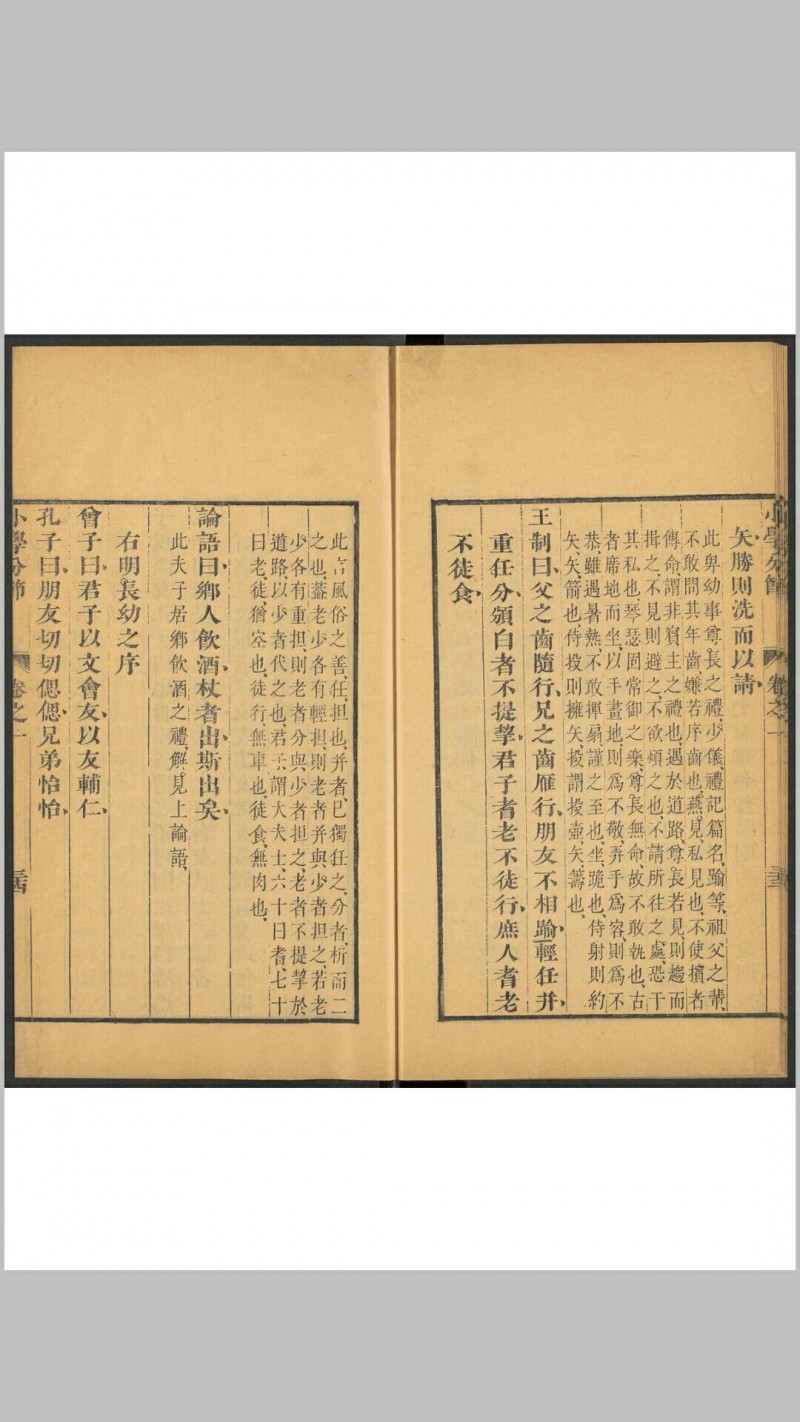 小學分節
卷之一
矢勝則洗而以請、
此卑幼事尊長之禮、少儀、禮記篇名、踰等、祖父之輩、
不敢問其年齒、嫌若序齒也、燕見、私見也、不使擯者
傳命、謂非賓主之禮也、遇於道路、尊長若見、則趨而
揖之、不見則避之、不欲煩之也、不請所往之處、恐干
其私也、琴瑟固常御之樂、尊長無命、故不敢執也、古
者席地而坐、以手畫地、則爲不敬、弄手爲容、則爲不
恭、雖遇暑熱、不敢揮扇、謹之至也、坐、跪也、侍射則約
矢、矢、箭也、侍投則擁矢、投謂投壺、矢、籌也、
王制曰、父之齒隨行、兄之齒雁行、朋友不相踰、輕任并、
重任分、頒白者不提挈、君子耆老不徒行、庶人耆老
不徒食、
此言風俗之善、任、担也、并者、已獨任之、分者、析而二
之也、蓋老少各有輕担、則老者并與少者担之、若老
少各有重担、則老者分與少者担之、老者不提挈於
道路、以少者代之也、君子、謂大夫士、六十曰耆、七十
曰老、徒猶空也、徒行、無車也、徒食、無肉也、
論語曰、鄉人飲酒、杖者出、斯出矣、
此夫子居鄉飲酒之禮、解見上論語、
右明長幼之序
曾子曰、君子以文會友、以友輔仁、
孔子曰、朋友切切偲偲、兄弟怡怡、
小學分節
卷之一